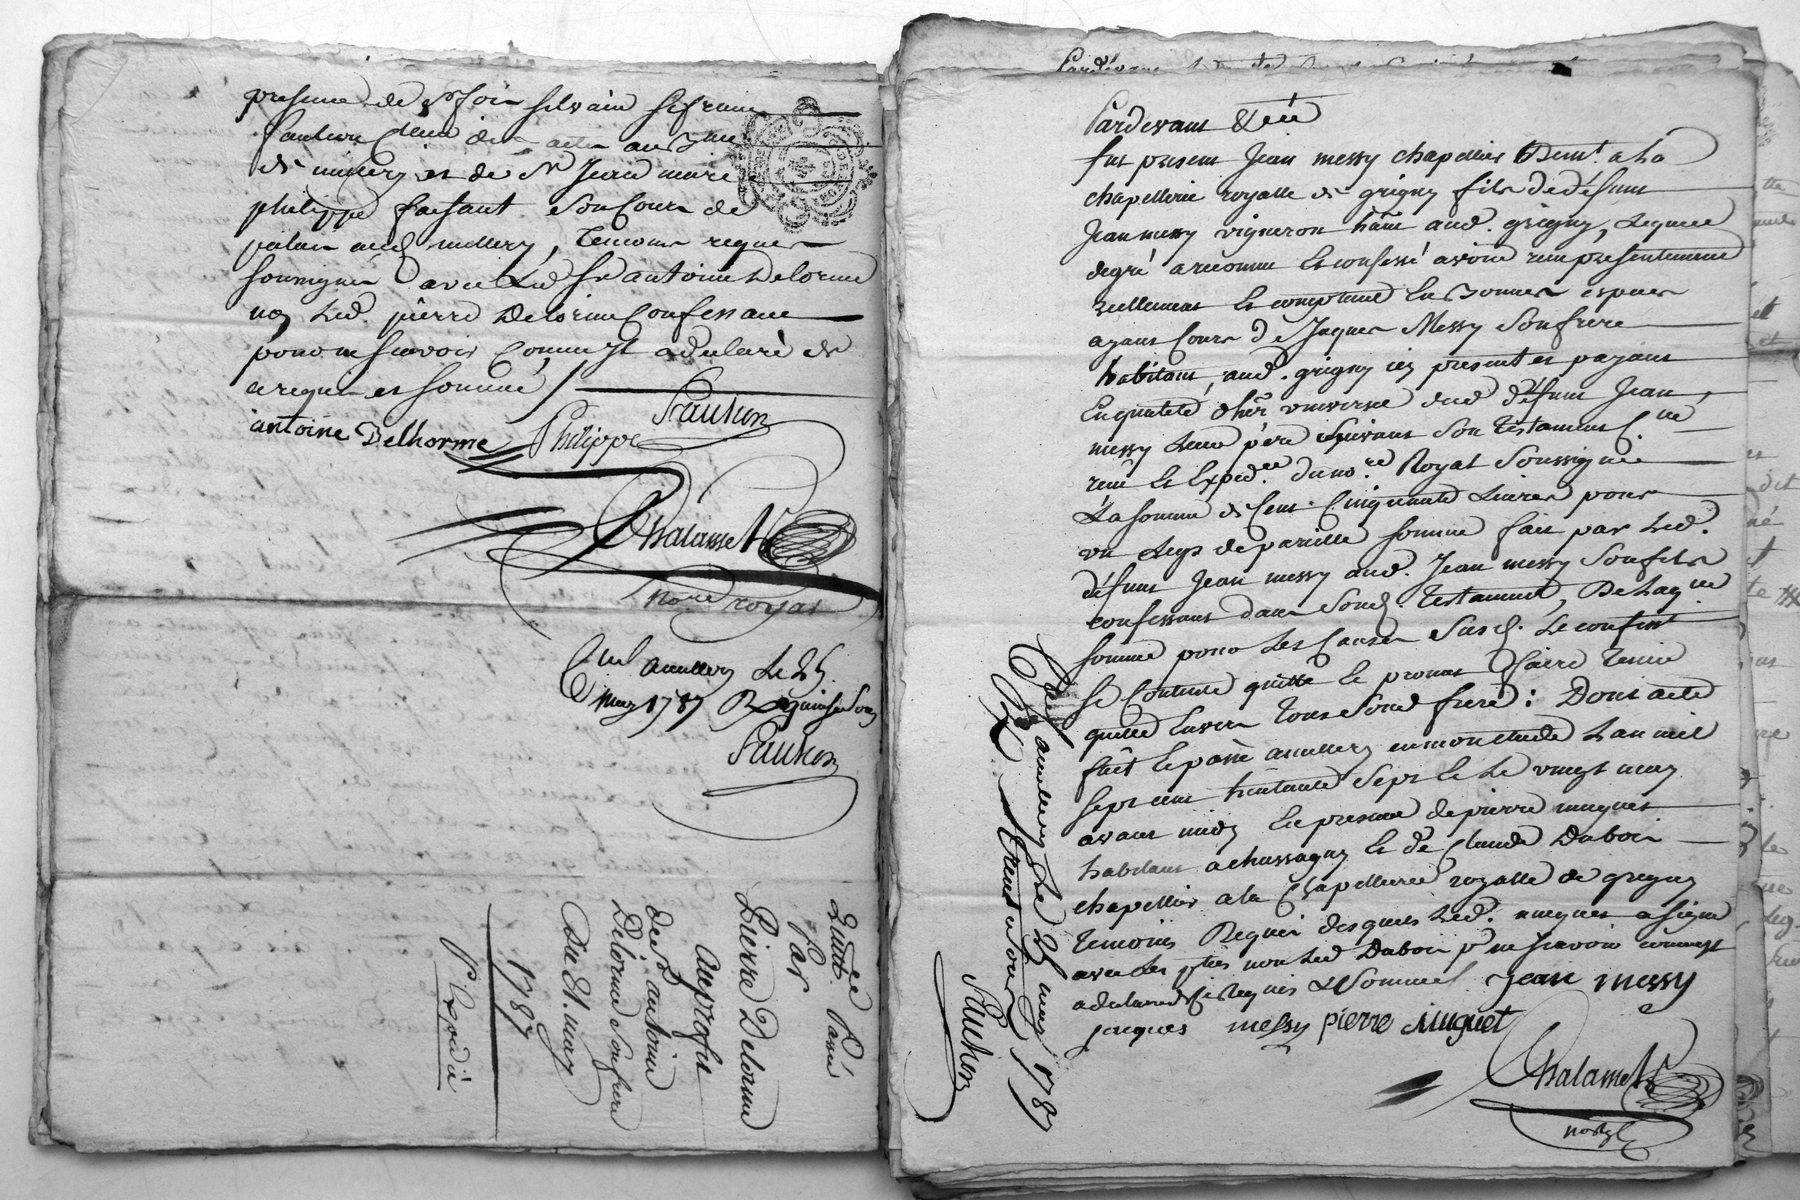 presence de Sr Join silvain
Paulson Clerc des actes au Bureau
de millery et de Sr Jean marie
philippe faisant son Cours de
palais aud millery, temoins requis
soussignés avec Led Sr antoine Delorme
non Led. pierre Delorme Confessant
pour ne sçavoir Comme il a declaré de
ce requis et sommé
antoine Delhorme
Philippe
Paulson
Chalamel
Nore royal
Clé a millery Le 25
may 1787 R quinse Sous
Paulson
Quittce Passée
Par
Pierre Delorme
au profit
de Sr antoine
Delorme Son frere
Du 21. may
1787
P. Expédié
Pardevant &ée
fut present Jean messy chapellier Demt. a La
chapellerie royalle de grigny fils de défunt
Jean messy vigneron hânt aud. grigny, Lequel
degré a reconnu et confessé avoir reçu présentement
reellement et comptant En Bonnes especes
ayans Cours de Jaques Messy Son frere
habitant, aud. grigny icy present et payant
En qualité d'hér universel dud défunt Jean
messy Leur père suivant Son Testament
reçu et Expéd.ée du nore Royal Soussigné
La Somme de Cent Cinquante Livres pour
un Legs de pareille somme fait par Led.
défunt Jean messy aud. Jean messy Son fils
confessant dans Sond. Testament, De Laqlle
somme pour Les Causes Susd. Le confessant
Se Contente quitte et promet faire Tenir
quitte Envers Tous Sond frere: Dont acte
fait et passé a millery en mon etude L'an mil
sept cent huitante Sept et Le vingt may
avant midy En presence de pierre muguet
habitant a chassagny et de Claude Duboin
chapellier a La Chapellerie royalle de grigny
Temoins Requis desquels Led. muguet a signé
avec Les pties non Led Duboin pr ne sçavoir comme il
a declaré de ce Requis et Sommé. jean messy
jacques messy pierre Muguet
Chalamel
nore Rl
Clé a millery Le 25 may 1787
R trente Sous
Paulson